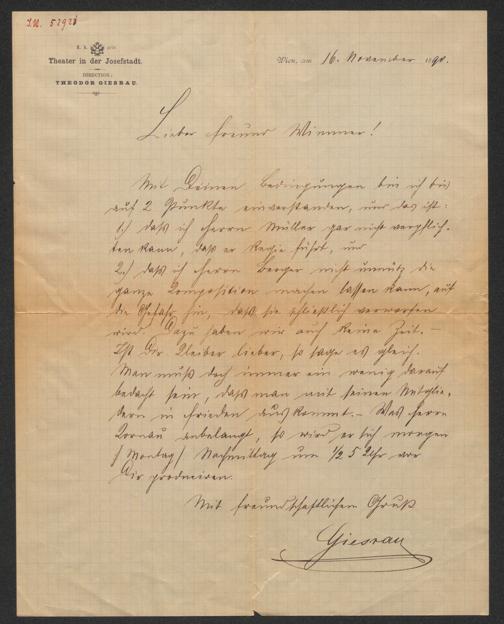 I.N. 52921
K. K. priv.
Theater in der Josefstadt.
DIRECTION:
THEODOR GIESRAU.
Wien, am 16. November 1890.
Lieber Freund Wimmer!
Mit Deinen Bedingungen bin ich bis
auf 2 Punkte einverstanden, und das ist:
1.) daß ich Herrn Müller gar nicht verpflich-
ten kann, daß er Regie führt, und
2.) daß ich Herrn Berger nicht unnütz die
ganze Composition machen lassen kann, auf
die Gefahr hin, daß sie schließlich verworfen
wird. Dazu haben wir auch keine Zeit. –
Ist Dir Kleiber lieber, so sage es gleich.
Man muß doch immer ein wenig darauf
bedacht sein, daß man mit seinen Mitglie-
dern in Frieden auskommt. – Was Herrn
anbelangt, so wird er sich morgen
/Montag/ Nachmittag um ½ 5 Uhr vor
Dir produciren.
Mit freundschaftlichem Gruß
Giesrau